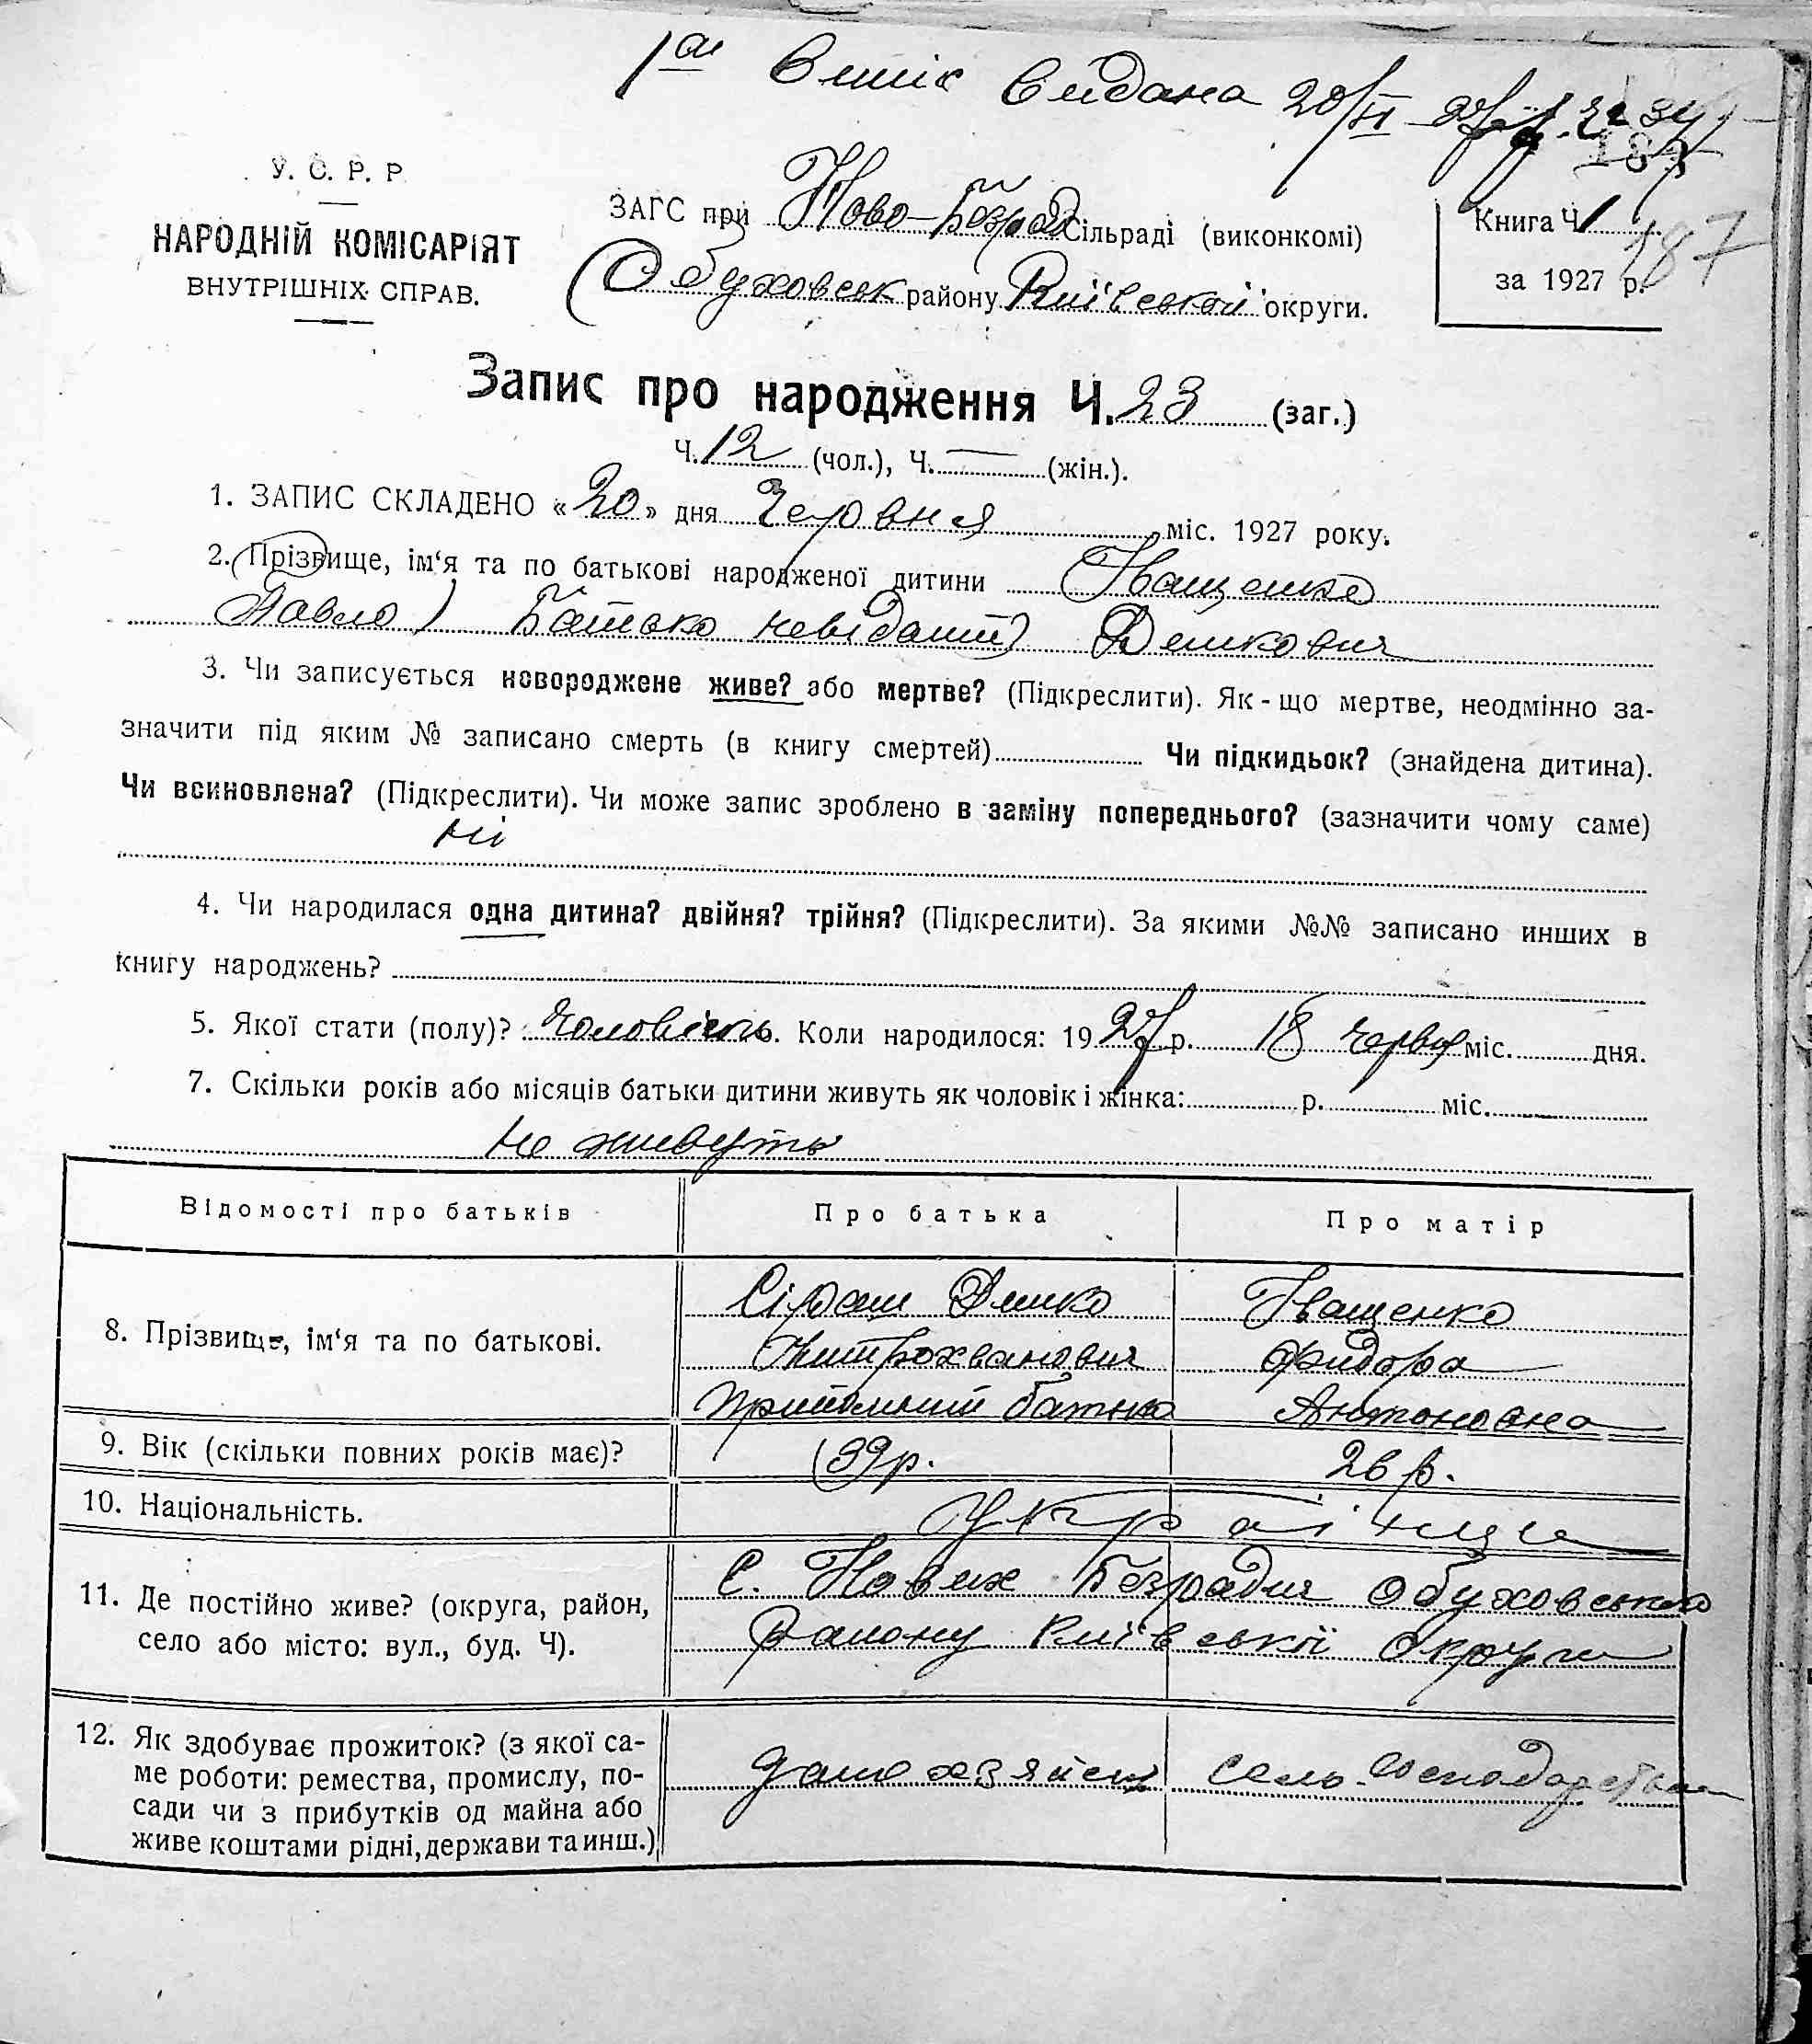 1ая випис видана 20/VI-27 р.
У. С. Р. Р
НАРОДНІЙ КОМІСАРІЯТ
ВНУТРІШНІХ СПРАВ.
ЗАГС при Ново-Безрад Сільраді (виконкомі)
Обуховськ району Київської округи.
Книга Ч 1
187
за 1927 р.
Запис про народження Ч. 23 (заг.)
Ч. 12 (чол.), Ч. — (жін.).
1. ЗАПИС СКЛАДЕНО « 20 » дня Червня міс. 1927 року.
2. (Прізвище, ім‘я та по батькові народженої дитини Іващенко
Павло) Батько невідомий) Демкович
3. Чи записується новороджене живе? або мертве? (Підкреслити). Як-що мертве, неодмінно за-
значити під яким № записано смерть (в книгу смертей) Чи підкидьок? (знайдена дитина).
Чи всиновлена? (Підкреслити). Чи може запис зроблено в заміну попереднього? (зазначити чому саме)
ні
4. Чи народилася одна дитина? двійня? трійня? (Підкреслити). За якими №№ записано инших в
книгу народжень?
5. Якої стати (полу)? Чоловічь. Коли народилося: 1927 р. 18 червня міс. дня.
7. Скільки років або місяців батьки дитини живуть як чоловік і жінка: р. міс.
не живуть
Відомості про батьків Про батька Про матір
8. Прізвище, ім‘я та по батькові.
Сіраш Демко Іващенко
Митрохванович Фидора
прийомний батько Антоновна
9. Вік (скільки повних років має)? 39 р. 26 р.
10. Національність. Українци
11. Де постійно живе? (округа, район,
село або місто: вул., буд. Ч).
с. Нових Безрадич Обуховського
Району Київської Округи
12. Як здобуває прожиток? (з якої са-
ме роботи: ремества, промислу, по-
сади чи з прибутків од майна або
живе коштами рідні, держави та инш.)
сель. господарства